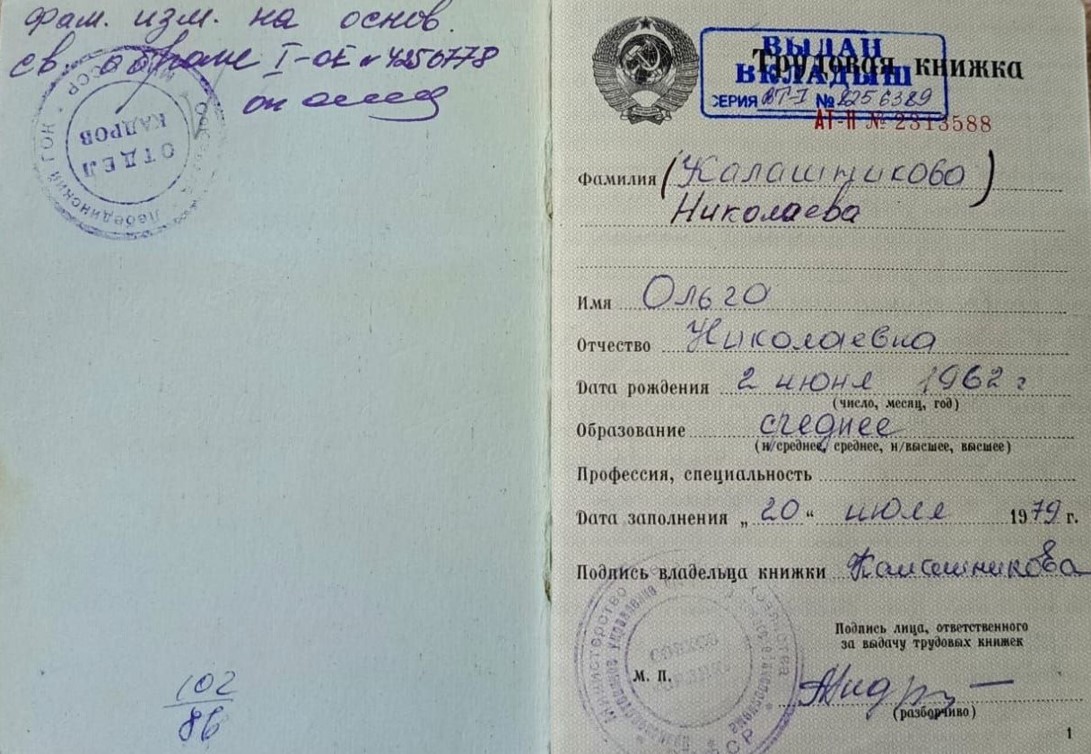 фам. изм. на основ.
св. о браке I-ОЕ № 4250778
ОТДЕЛ
КАДРОВ
Лебединский ГОК
СССР
102
86
Трудовая книжка
ВЫДАН
ВКЛАДЫШ
СЕРИЯ ВТ-I № 8256389
АТ-II № 2313588
Фамилия (Калашникова)
Николаева
Имя Ольга
Отчество Николаевна
Дата рождения 2 июня 1962 г
(число, месяц, год)
Образование среднее
(н/среднее, среднее, н/высшее, высшее)
Профессия, специальность
Дата заполнения „20“ июля 1979 г.
Подпись владельца книжки Калашникова
Подпись лица, ответственного
за выдачу трудовых книжек
М. П.
(разборчиво)
Министерство
СОВХОЗ
1